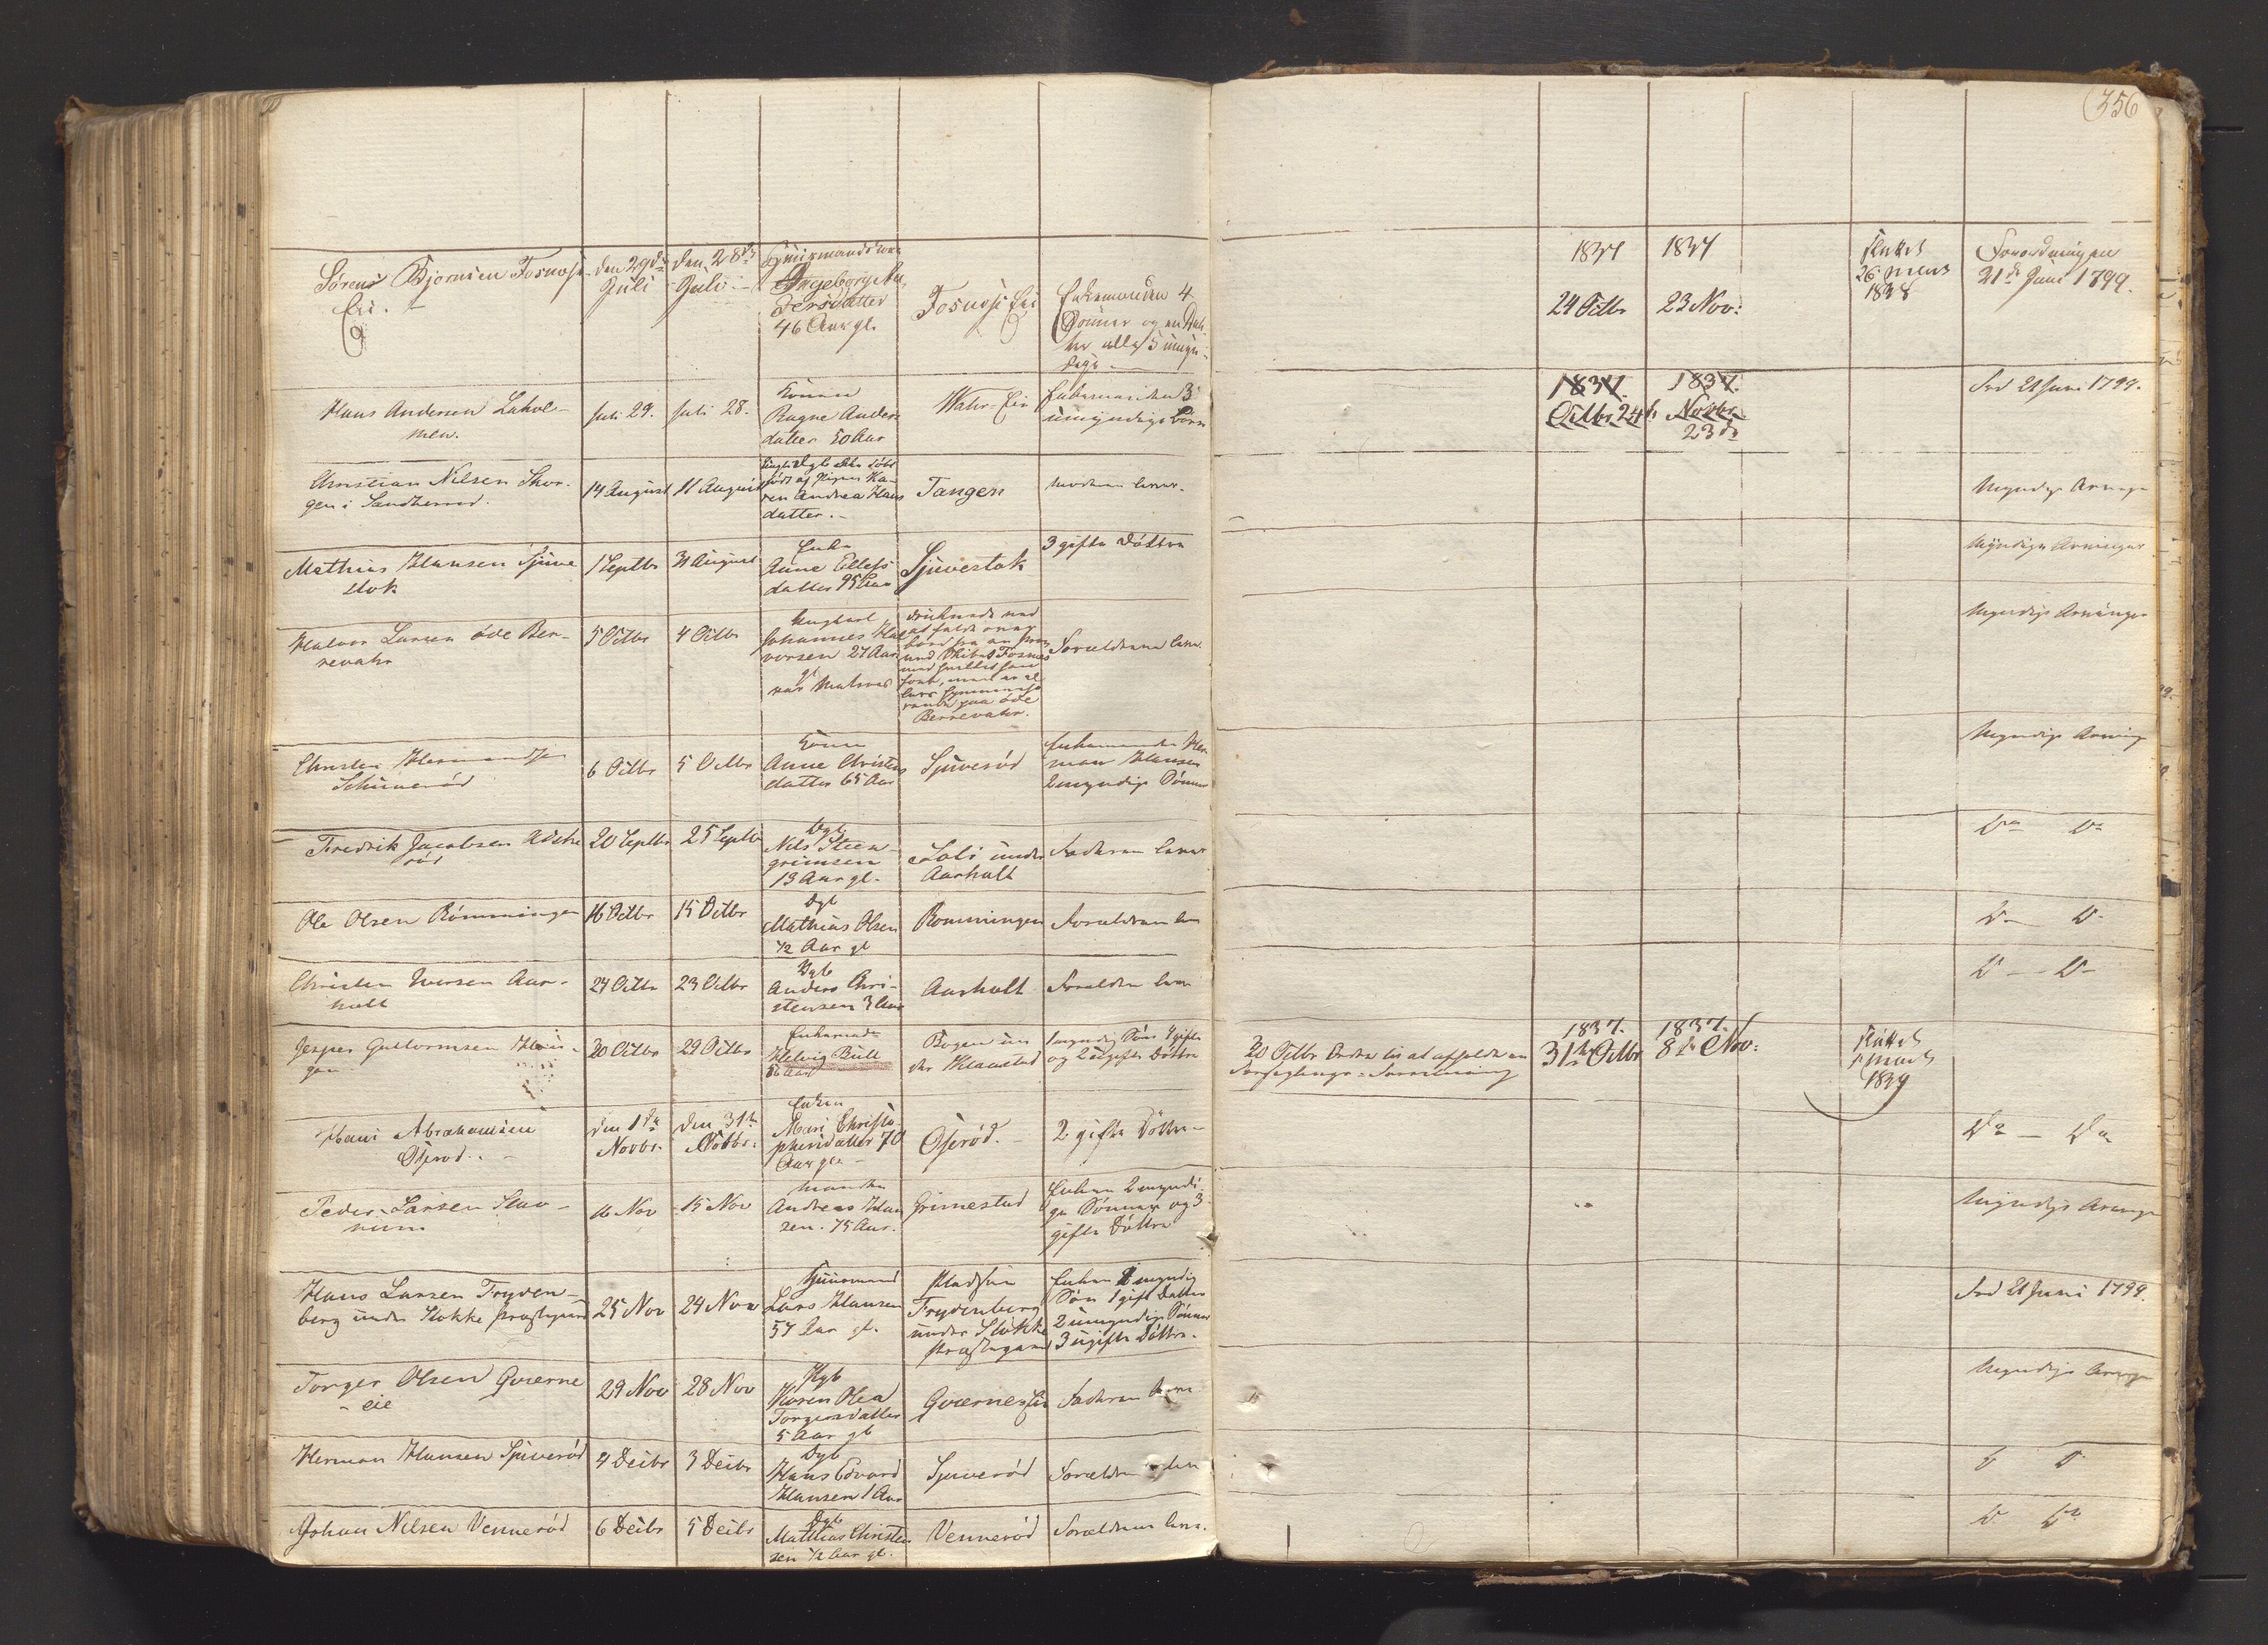 356
Sørens Bjørnsen Fosnæs
Eie.
den 29de
Juli
den 28de
Juli
Huusmandskone
Ingeborg An-
dersdatter
46 Aar gl.
Fosnæs Eie
Enkemanden 4
Sønner og en Dat-
ter alle 5 umyn-
dige
1837
24 Octbr
1837
23 Nov:
sluttet
26 Mars
1838
Forordningen
21de Juni 1799.
Hans Andersen Lahol-
men.
Juli 29.
Juli 28.
Konen
Ragne Anders
datter 50 Aar
Watne Eie
Enkemanden 3
umyndige Børn
1837.
Octbr 24
1837.
Novbr
23de
Frd 21 Juni 1799.
Christian Nilsen Skor-
gen i Sandherred.
14 August
11 August
født af Pigen Ka-
ren Andrea Hans
datter.
Tangen
Moderen lever.
Myndige Arvinger
Mathias Hansen Sjuve
stok
1 Septbr
31 August
Enke
Anne Ellefs
datter 95 Aar
Sjuvestok
3 gifte Døttre
Myndige Arvinger
Halvor Larsen øde Ber-
revahr
5 Octbr
4 Octbr
Ungkarl
Johannes Hal
vorsen 27 Aar
gl
var Matros
druknede ved
at falde over
bord fra
Skibet Fosnæs
paa øde
Berrevahr.
Forældrene leve.
Myndige Arvinger
Christen Hermandsen
Schuverød
6 Octbr
5 Octbr
Konen
Anne Christens
datter 65 Aar
Sjuverød
Enkemanden Her-
man Hansen
2 myndige Sønner
Myndige Arving
Fredrik Jacobsen
rød
20 Septbr
25 Septbr
Dgb
Nils Steen-
grimsen
13 Aar gl.
under
Aarholt
Faderen lever
Do Do
Ole Olsen Rømmingen
16 Octbr
15 Octbr
Dgb
Mathias Olsen
1/2 Aar gl
Romningen
Forældrene leve
Do Do
Christen Iversen Aar-
holt
24 Octbr
23 Octbr
Dgb
Anders Chri-
stensen 3 Aar
Aarholt
Forældre leve
Do Do
Jesper Guttormsen Hau-
gen
30 Octbr
29 Octbr
Enkemadm
Helvig Bull
56 Aar
Bogen un
der Klaastad
1 myndig Søn 4 gifte
og 2 ugifte Døttre
30 Octbr Ordre til at afholde en
Forseglings-Forretning
1837.
31te Octbr
1837.
8de Nov:
sluttet
Marts
1839
Hans Abrahamsen
Oserød.
den 1de
Novbr.
den 31te
Octbr.
Enken
Mari Christo
phersdatter 70
Aar gl
Oserød.
2 gifte Døttre
Do Do
Peder Larsen Stav-
num
16 Nov
15 Nov
Manden
Andreas Han
sen. 75 Aar.
Grimestad
Enken 2 myndi
ge Sønner og 3
gifte Døttre
Myndige Arvinger
Hans Larsen Fryden-
berg under Stokke Præstegaard
25 Nov
24 Nov
Huusmand
Lars Hansen
57 Aar gl.
Pladsen
Frydenberg
under Stokke
Præstegaard
Enken 1 myndig
Søn 1 gift Datter
2 umyndige Sønner
3 ugifte Døttre.
Frd 21 Juni 1799.
Torger Olsen Gværne
eie
29 Nov
28 Nov
Pgb
Karen Olea
Torgersdatter
5 Aar gl
Gværnes Eie
Faderen lever
Myndige Arvinger
Herman Hansen Sjuverød
4 Decbr
3 Decbr
Dgb
Hans Edvard
Hansen 1 Aar
Sjuverød
Forældrene leve
Do Do
Johan Nilsen Vennerød
6 Decbr
5 Decbr
Dgb
Mathias Christen
sen 1/2 Aar gl.
Vennerød
Forældrene leve.
Do Do